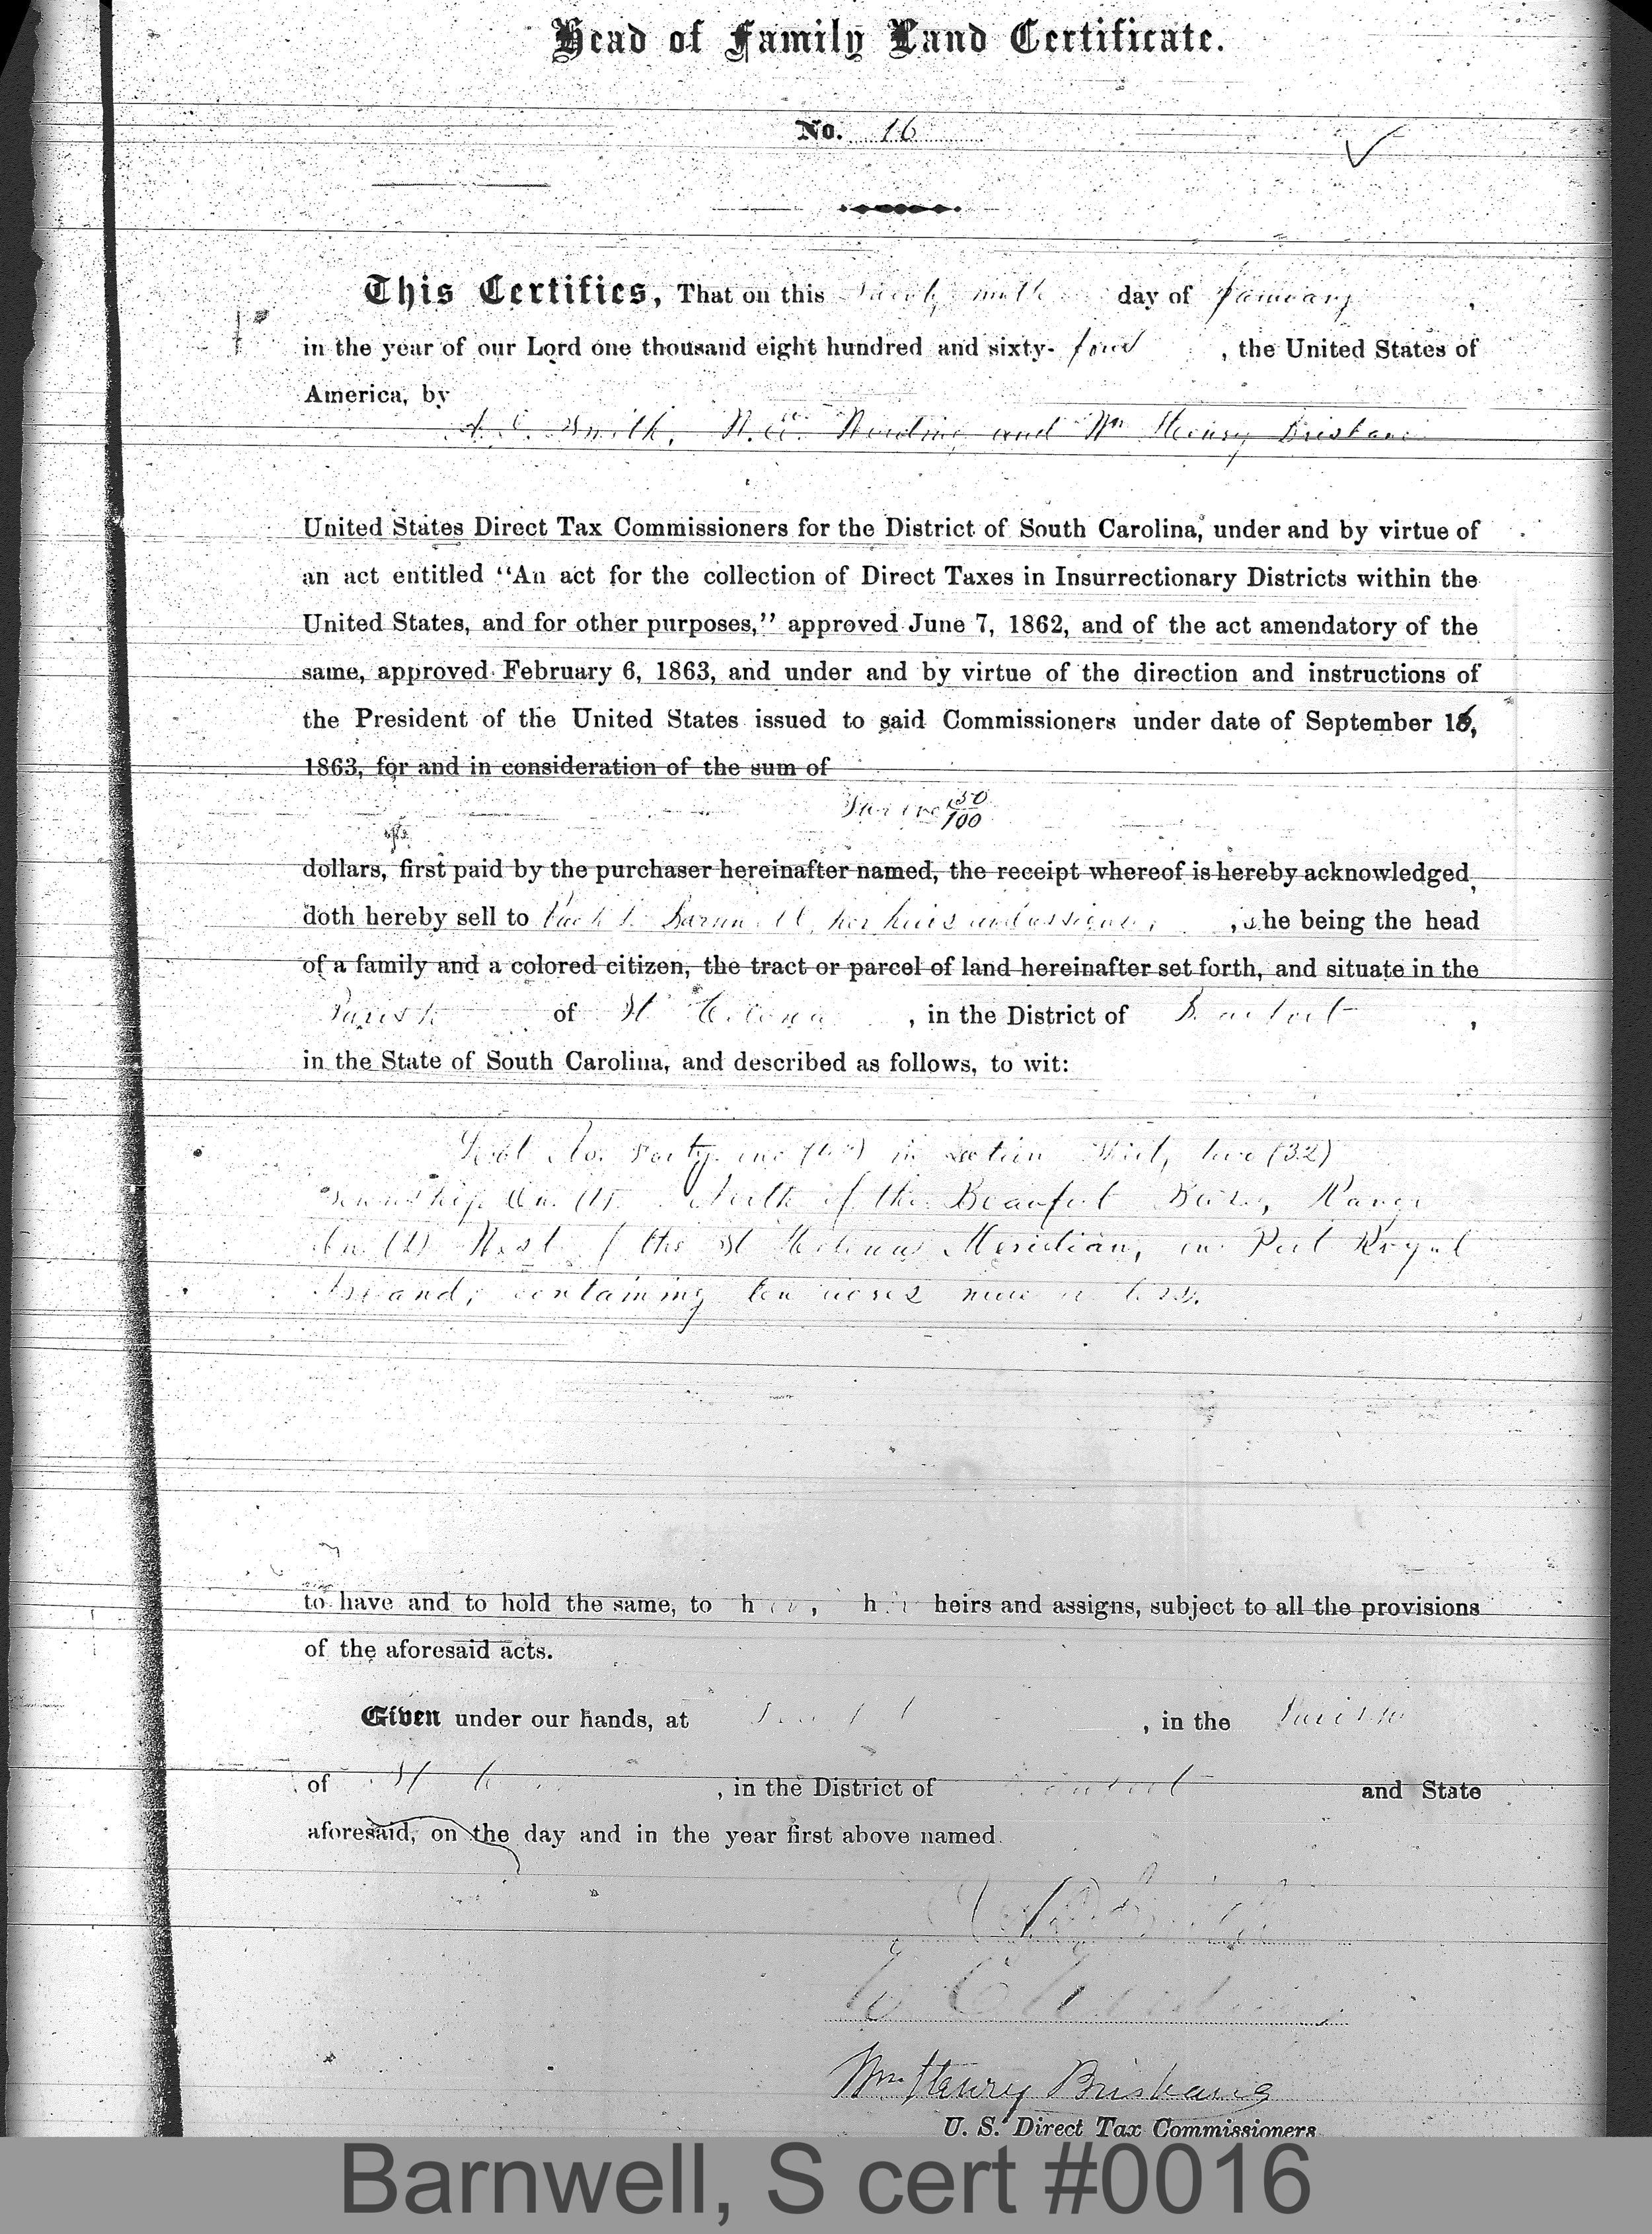 Head of Family Land Certificate.
No. 16
This Certifies, That on this day of January,
in the year of our Lord one thousand eight hundred and sixty-four, the United States of
America, by
Smith, and Wm Henry Brisbane
United States Direct Tax Commissioners for the District of South Carolina, under and by virtue of
an act entitled “An act for the collection of Direct Taxes in Insurrectionary Districts within the
United States, and for other purposes,” approved June 7, 1862, and of the act amendatory of the
same, approved February 6, 1863, and under and by virtue of the direction and instructions of
the President of the United States issued to said Commissioners under date of September 16,
1863, for and in consideration of the sum of
50/100
dollars, first paid by the purchaser hereinafter named, the receipt whereof is hereby acknowledged,
doth hereby sell to Barnwell, her heirs and assigns, she being the head
of a family and a colored citizen, the tract or parcel of land hereinafter set forth, and situate in the
Parish of St Helena, in the District of Beaufort,
in the State of South Carolina, and described as follows, to wit:
Lot No. in Section Thirty two (32)
Township One (1) North of the Beaufort Base, Range
One (1) West of the St Helena Meridian, on Port Royal
Island, containing ten acres more or less.
to have and to hold the same, to her, her heirs and assigns, subject to all the provisions
of the aforesaid acts.
Given under our hands, at , in the Parish
of St , in the District of Beaufort and State
aforesaid, on the day and in the year first above named.
Wm. Henry Brisbane
U. S. Direct Tax Commissioners
Barnwell, S cert #0016